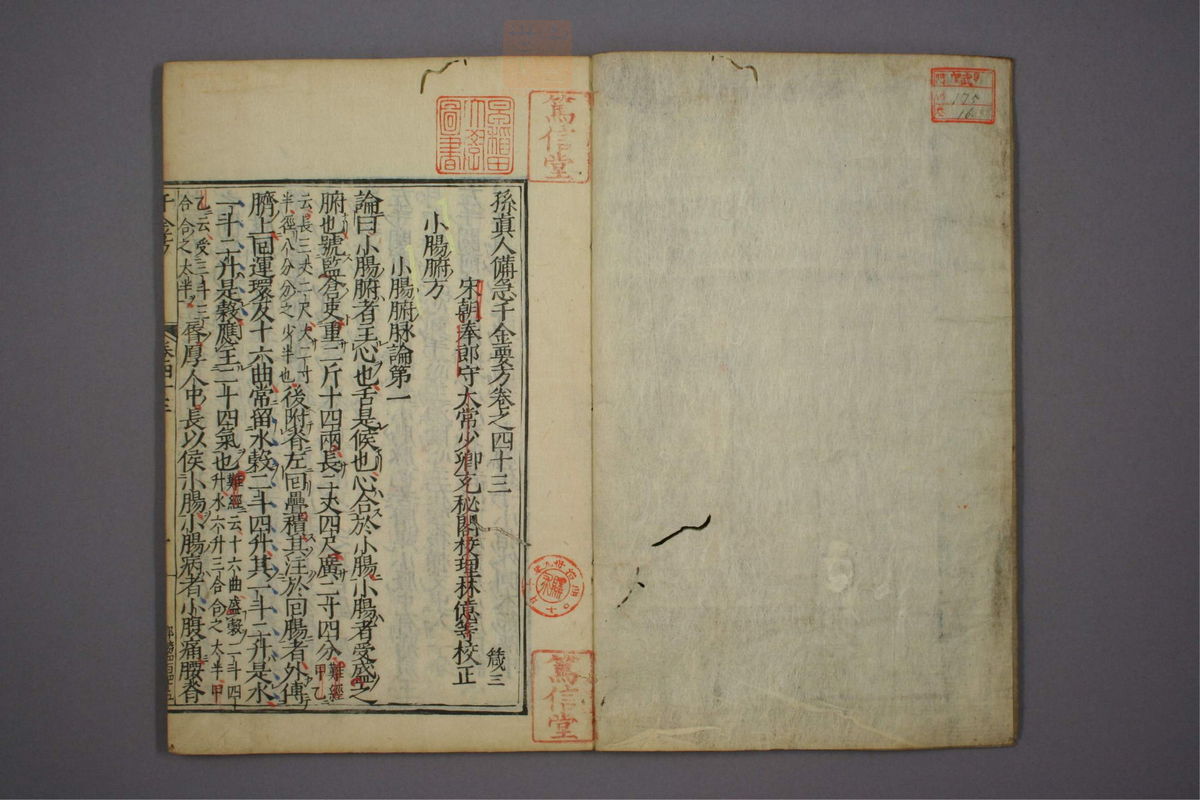 孫真人備急千金要方卷之四十三
箴三
宋朝奉郎守太常少卿充秘閣校理林億等校正
小腸腑方
小腸腑脉論第一
論曰小腸腑者主心也舌是候也心合於小腸小腸者受盛之
腑也號監倉吏重二斤十四兩長二丈四尺廣二寸四分難經甲乙
云長三丈二尺大二寸半徑八分分之少半也後附脊左回疊積其注於回腸者外傅
臍上回運環反十六曲常留水穀二斗四升其一斗二升是水
一斗二升是穀應主二十四氣也難經云十六曲盛穀二斗四升水六升三合合之太半甲
乙云受三斗三合合之太半唇厚人中長以候小腸小腸病者小腹痛腰脊
千金方
卷四十三
一
早稲田大學圖書
篤信堂
篤信堂
175
16